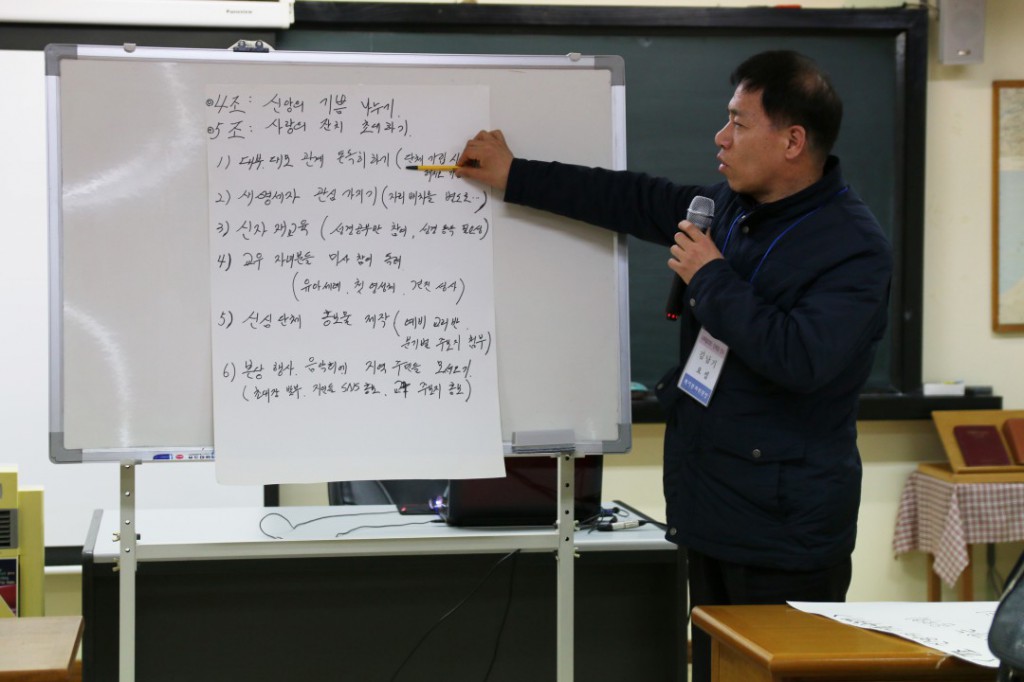 Panasonic
⊙4조: 신앙의 기쁨 나누기.
⊙5조: 사랑의 잔치 초대하기.
1) 대부.대모 관계 돈독히 하기 (단체 가입 시
2) 새영세자 관심 가지기 (자리 배치를 번호로…)
3) 신자 재교육 (성경공부반 참여, 성경 통독
4) 교우 자녀분들 미사 참여 독려
(유아세례, 첫 영성체, 견진 성사)
5) 신심 단체 홍보물 제작 (예비 교리반.
분기별 주보지 첨부)
6) 본당 행사. 음악회에 지역 주민을 모시기.
(초대장 발부, 지인들 SNS 홍보, 주보지 홍보)